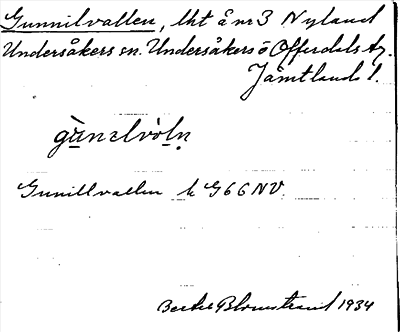 Gunnilvallen, lht å nr 3 Nyland
Undersåkers sn. Undersåkers o Offerdals tg.
Jämtlands l.
gu̠nelvòl̠ṇ
Gunillvallen k G66NV.
Blomstrand 1934